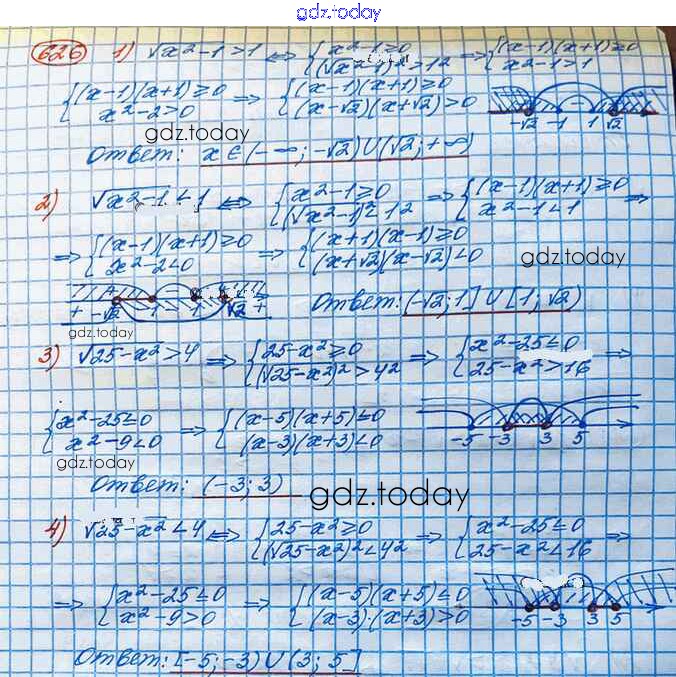 gdz.today
626 1) √x²-1 > 1 ⟺ {x²-1≥0 {(√x²-1)² > 1² ⟹ {(x-1)(x+1)≥0 {x²-1>1
{(x-1)(x+1)≥0 {x²-2>0 ⟹ {(x-1)(x+1)≥0 {(x-√2)(x+√2)>0 -√2 -1 1 √2
gdz.today
Ответ: x∈(-∞; -√2)∪(√2; +∞)
2) √x²-1 < 1 ⟺ {x²-1≥0 {(√x²-1)² < 1² ⟹ {(x-1)(x+1)≥0 {x²-1<1 ⟹
⟹ {(x-1)(x+1)≥0 {x²-2<0 ⟹ {(x+1)(x-1)≥0 {(x+√2)(x-√2)<0
gdz.today
+ -√2 -1 1 √2 + Ответ: (-√2; 1] ∪ [1; √2)
gdz.today
3) √25-x² > 4 ⟹ {25-x²≥0 {(√25-x²)² > 4² ⟹ {x²-25≤0 {25-x²>16 ⟹
{x²-25≤0 {x²-9<0 ⟹ {(x-5)(x+5)≤0 {(x-3)(x+3)<0 -5 -3 3 5
gdz.today
Ответ: (-3; 3)
gdz.today
4) √25-x² < 4 ⟺ {25-x²≥0 {(√25-x²)² < 4² ⟹ {x²-25≤0 {25-x²<16 ⟹
⟹ {x²-25≤0 {x²-9>0 ⟹ {(x-5)(x+5)≤0 {(x-3)·(x+3)>0 -5 -3 3 5
Ответ: [-5; -3) ∪ (3; 5]